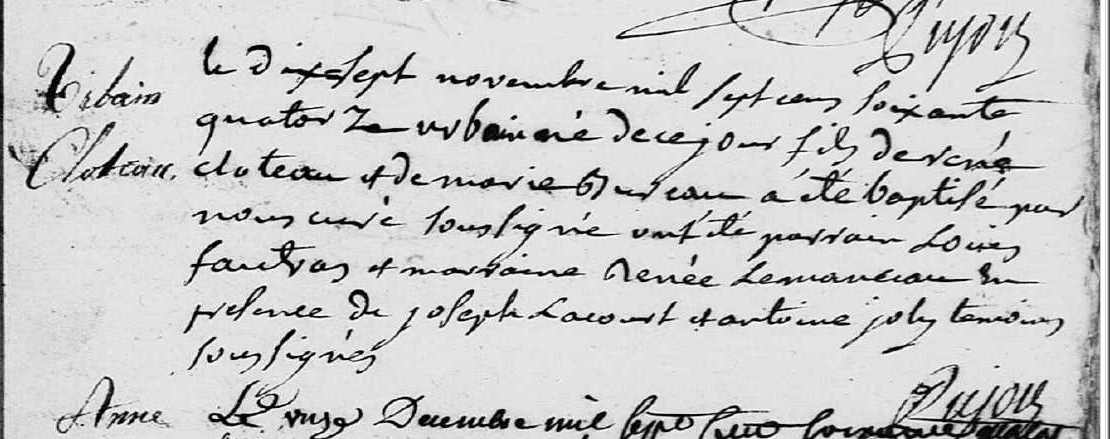 Dujou
Urbain
Cloteau.
le dixsept novembre mil sept cens soixante
quatorze urbain né de ce jour fils de rené
cloteau et de marie Bureau a été baptisé par
nous curé soussigné ont été parrain Louis
fautras et marraine Renée Lemanceau En
presence de joseph Lacourt et antoine joly temoins
soussignés
Dujou
Anne Le onze Decembre mil sept Cent soixante